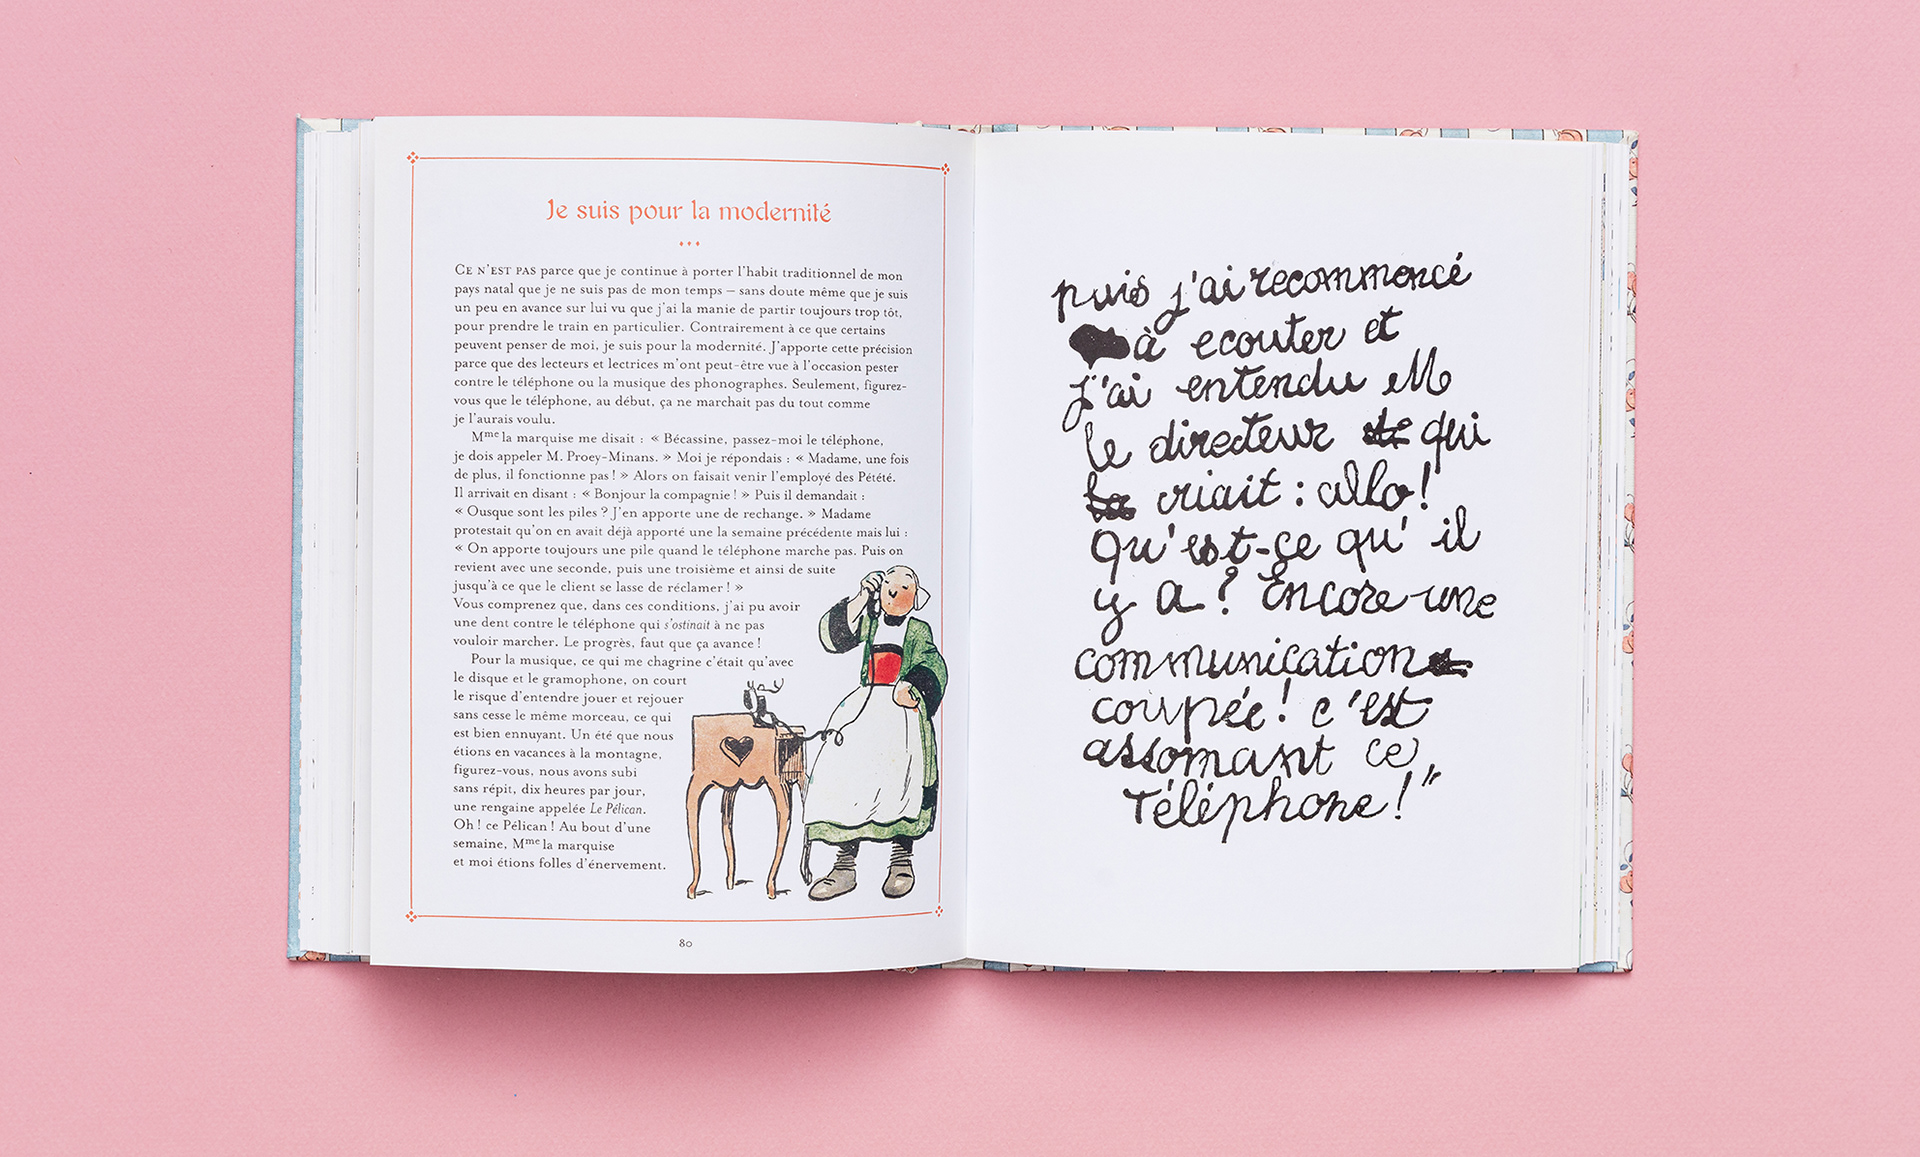 Je suis pour la modernité
CE N'EST PAS parce que je continue à porter l'habit traditionnel de mon
pays natal que je ne suis pas de mon temps – sans doute même que je suis
un peu en avance sur lui vu que j'ai la manie de partir toujours trop tôt,
pour prendre le train en particulier. Contrairement à ce que certains
peuvent penser de moi, je suis pour la modernité. J'apporte cette précision
parce que des lecteurs et lectrices m'ont peut-être vue à l'occasion pester
contre le téléphone ou la musique des phonographes. Seulement, figurez-
vous que le téléphone, au début, ça ne marchait pas du tout comme
je l'aurais voulu.
Mme la marquise me disait : « Bécassine, passez-moi le téléphone,
je dois appeler M. Proey-Minans. » Moi je répondais : « Madame, une fois
de plus, il fonctionne pas ! » Alors on faisait venir l'employé des Pétété.
Il arrivait en disant : « Bonjour la compagnie ! » Puis il demandait :
« Ousque sont les piles ? J'en apporte une de rechange. » Madame
protestait qu'on en avait déjà apporté une la semaine précédente mais lui :
« On apporte toujours une pile quand le téléphone marche pas. Puis on
revient avec une seconde, puis une troisième et ainsi de suite
jusqu'à ce que le client se lasse de réclamer ! »
Vous comprenez que, dans ces conditions, j'ai pu avoir
une dent contre le téléphone qui s'ostinait à ne pas
vouloir marcher. Le progrès, faut que ça avance !
Pour la musique, ce qui me chagrine c'était qu'avec
le disque et le gramophone, on court
le risque d'entendre jouer et rejouer
sans cesse le même morceau, ce qui
est bien ennuyant. Un été que nous
étions en vacances à la montagne,
figurez-vous, nous avons subi
sans répit, dix heures par jour,
une rengaine appelée Le Pélican.
Oh ! ce Pélican ! Au bout d'une
semaine, Mme la marquise
et moi étions folles d'énervement.
80
puis j'ai recommencé
à ecouter et
j'ai entendu M
le directeur qui
criait : allo !
Qu'est-ce qu'il
y a ? Encore une
communication
coupée ! c'est
assomant ce
Téléphone ! "